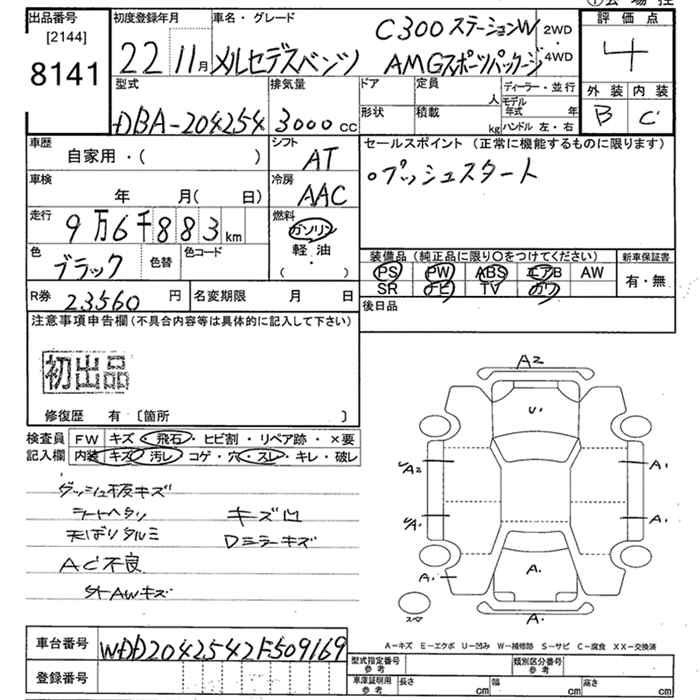 ①会場控
出品番号
[2144]
8141
初度登録年月
22 11月
車名・グレード
メルセデスベンツ
C300ステーションW
AMGスポーツパッケージ
2WD
・
4WD
評価点
4
外装 内装
B C
型式
DBA-204254
排気量
3000cc
ドア
形状
定員
人
積載
kg
ディーラー・並行
モデル年式 年
ハンドル 左・右
車歴
自家用・( )
シフト
AT
車検
年 月( 日)
冷房
AAC
走行
9万6千883km
燃料
ガソリン
軽・油
・( )
色
ブラック
色替
色コード
R券 23560円
名変期限 月 日
セールスポイント (正常に機能するものに限ります)
○プッシュスタート
装備品 (純正品に限り○をつけてください)
PS PW ABS エアB AW
SR ナビ TV カワ
新車保証書
有・無
後日品
注意事項申告欄 (不具合内容等は具体的に記入して下さい)
初出品
修復歴 有 [箇所 ]
検査員
記入欄
FW キズ・飛石・ヒビ割・リペア跡・×要
内装 キズ・汚レ・コゲ・穴・スレ・キレ・破レ
ダッシュ板キズ
シートヘタリ
天ばりタルミ
AC不良
外AWキズ
キズ凹
Dミラーキズ
A2
U.
A2
A1
A.
A1
A.
A.
A.
スペア
A-キズ E-エクボ U-凹み W-補修跡 S-サビ C-腐食 XX-交換済
車台番号 WDD2042542F509169
登録番号
型式指定番号
参考
類別区分番号
参考
車庫証明用
参考
長さ cm
幅 cm
高さ cm